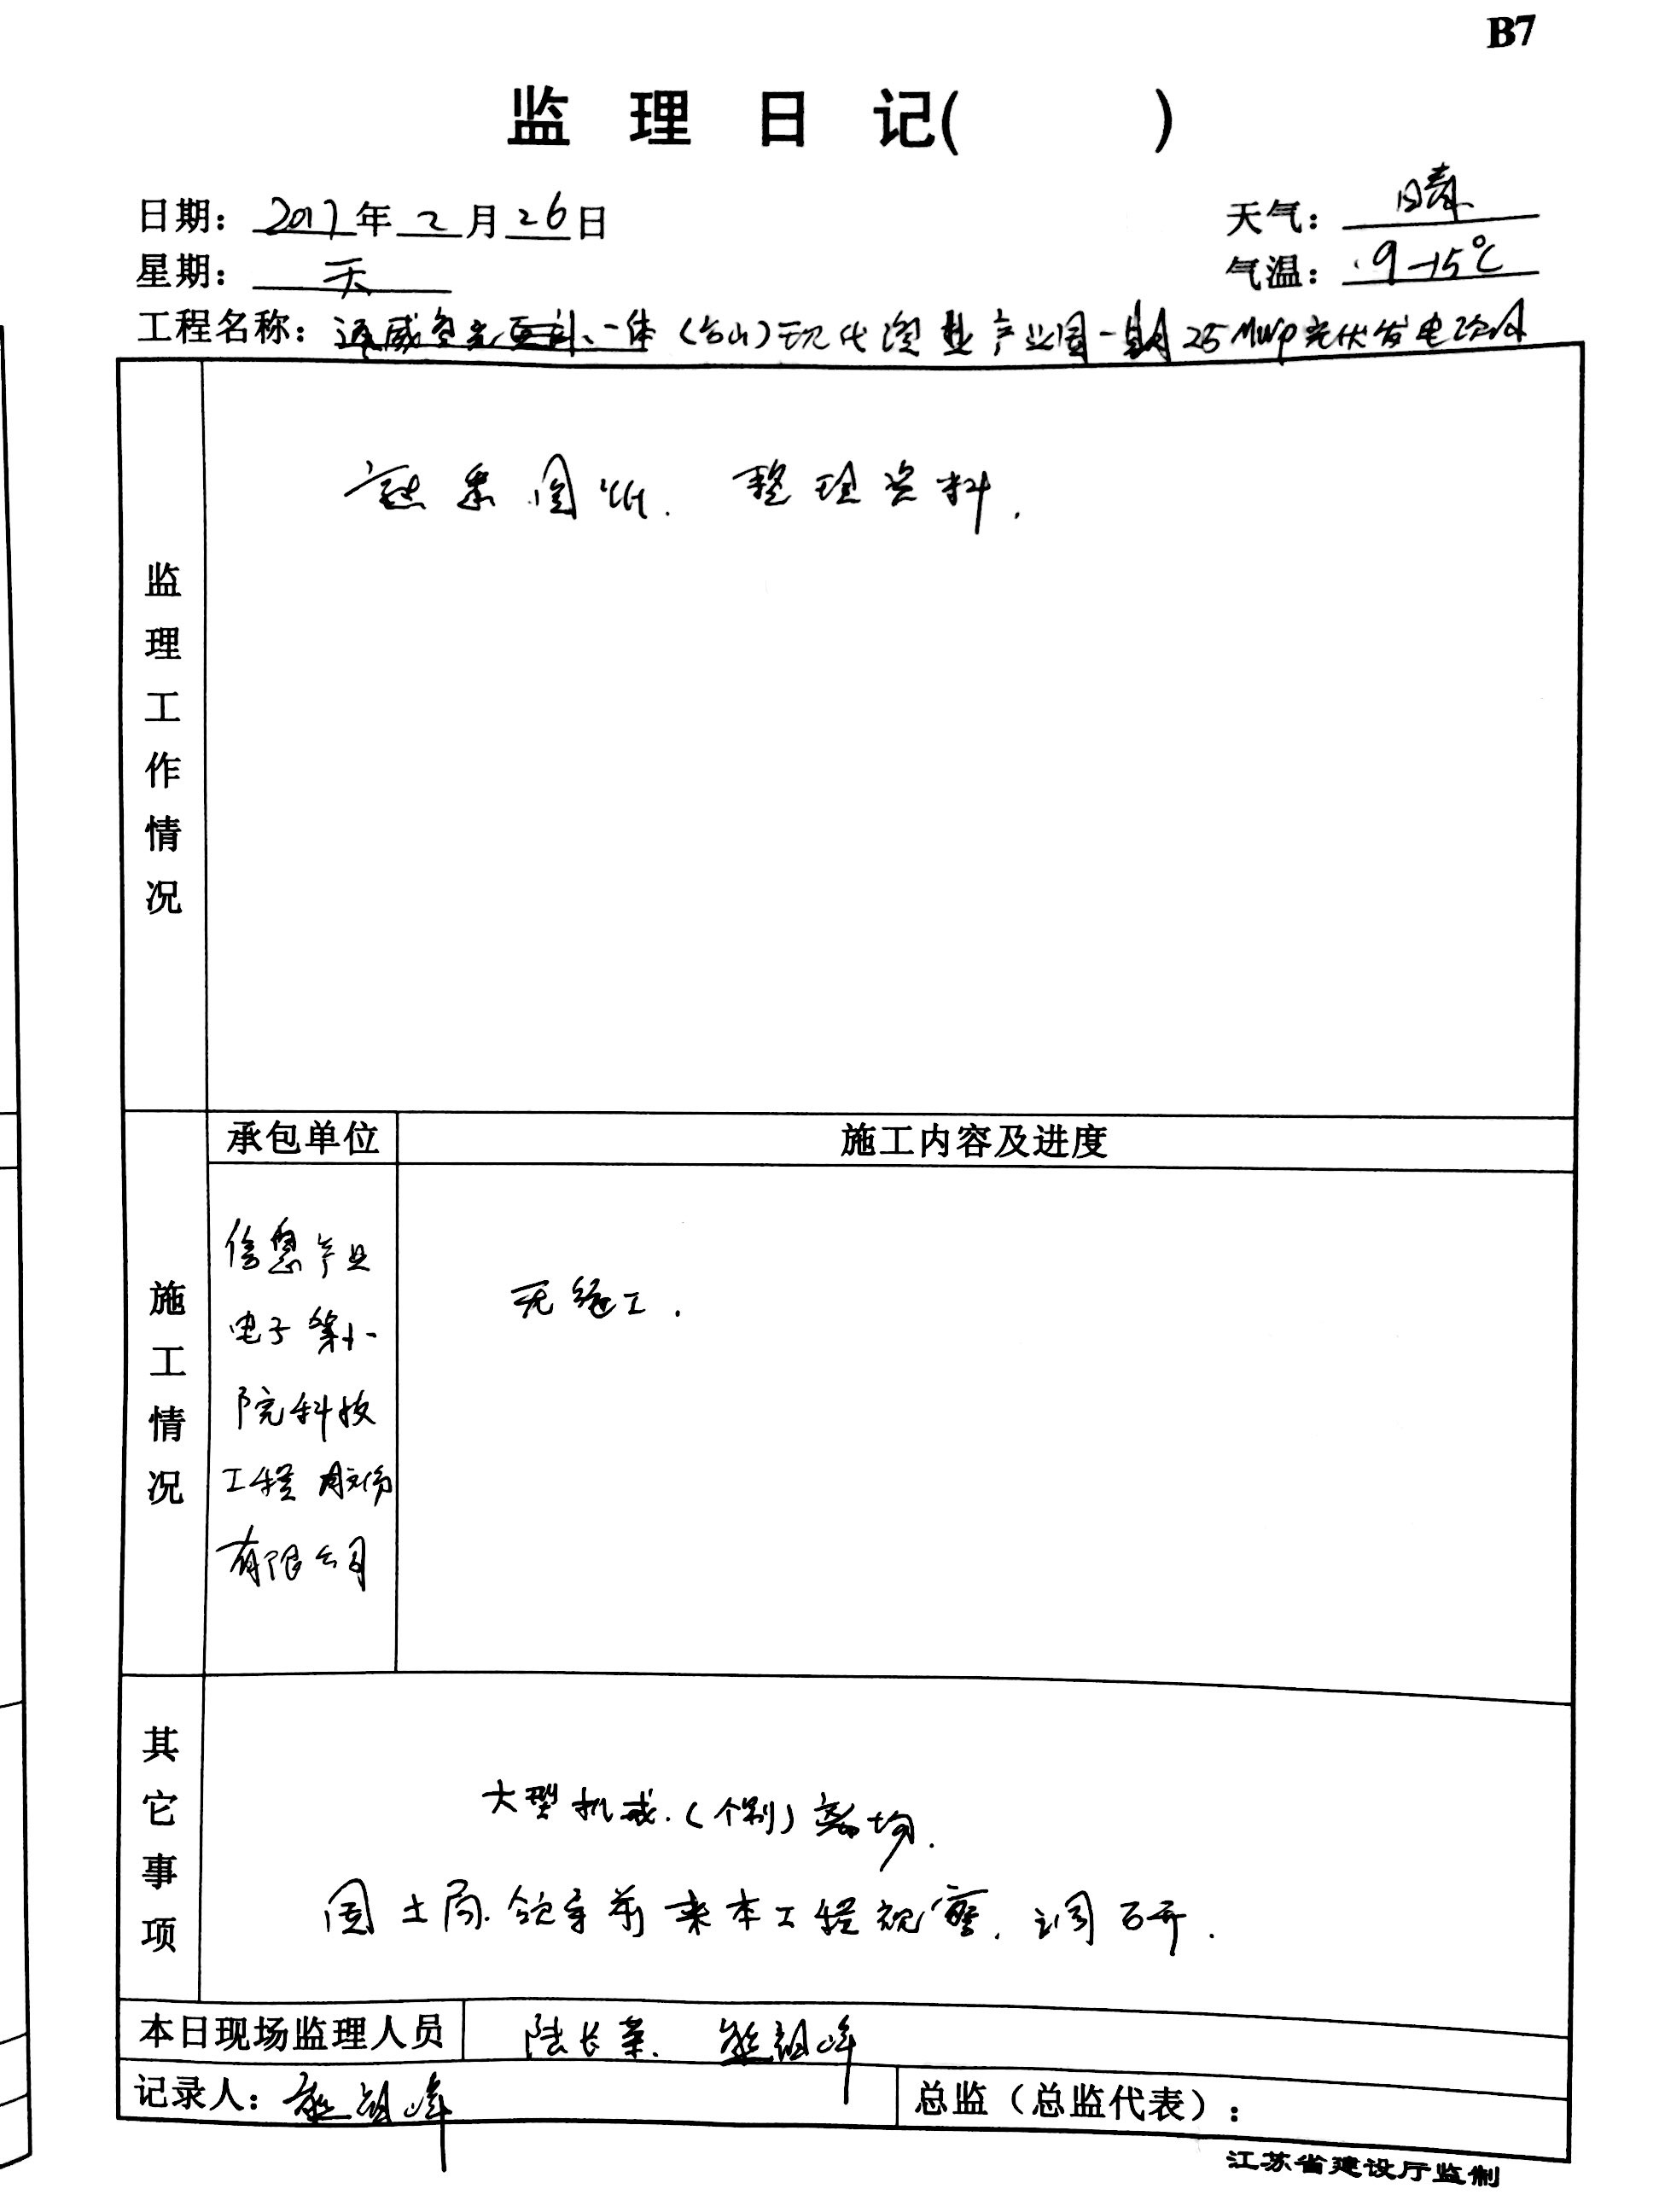 B7
监 理 日 记( )
日期: 2017年 2 月 26日
天气: 晴
星期: 天
气温: 9-15℃
工程名称: 通威渔光一体(台山)现代渔业产业园一期25MWp光伏发电项目
监理工作情况
熟悉图纸. 整理资料.
施工情况
承包单位
施工内容及进度
信息产业
电子第十一
院科技
工程股份
有限公司
无施工.
其它事项
大型机械.(个别)离场.
国土局领导前来本工程视察. 调研.
本日现场监理人员
陆长荣. 熊祖峰
记录人: 熊祖峰
总监(总监代表):
江苏省建设厅监制